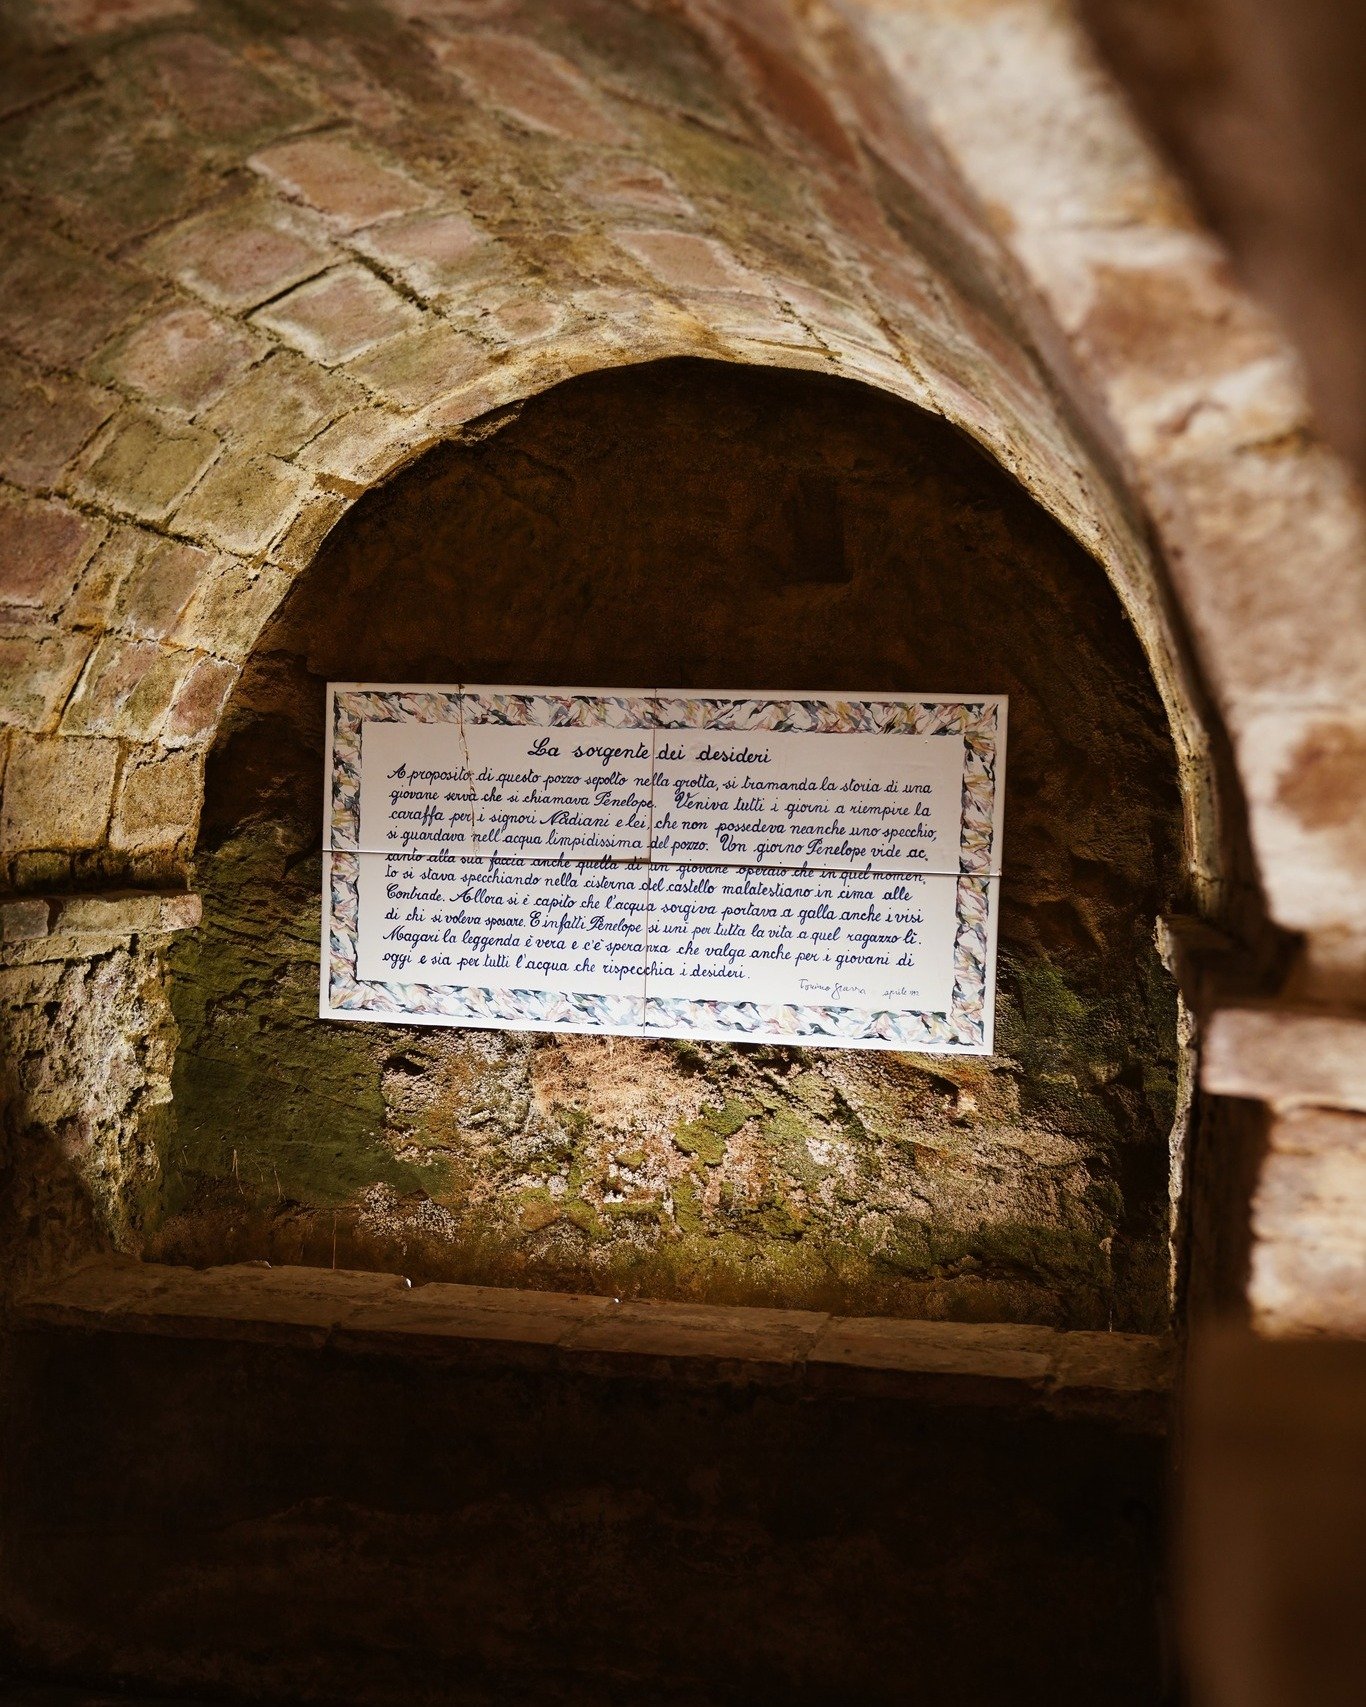 La sorgente dei desideri
A proposito di questo pozzo sepolto nella grotta, si tramanda la storia di una
giovane serva che si chiamava Pénelope. Veniva tutti i giorni a riempire la
caraffa per i signori Nadiani e lei, che non possedeva neanche uno specchio,
si guardava nell'acqua limpidissima del pozzo. Un giorno Pénelope vide ac,
canto alla sua faccia anche quella di un giovane operaio che in quel momen,
to si stava specchiando nella cisterna del castello malatestiano in cima alle
Contrade. Allora si è capito che l'acqua sorgiva portava a galla anche i visi
di chi si voleva sposare. E infatti Pénelope si unì per tutta la vita a quel ragazzo lì.
Magari la leggenda è vera e c'è speranza che valga anche per i giovani di
oggi e sia per tutti l'acqua che rispecchia i desideri.